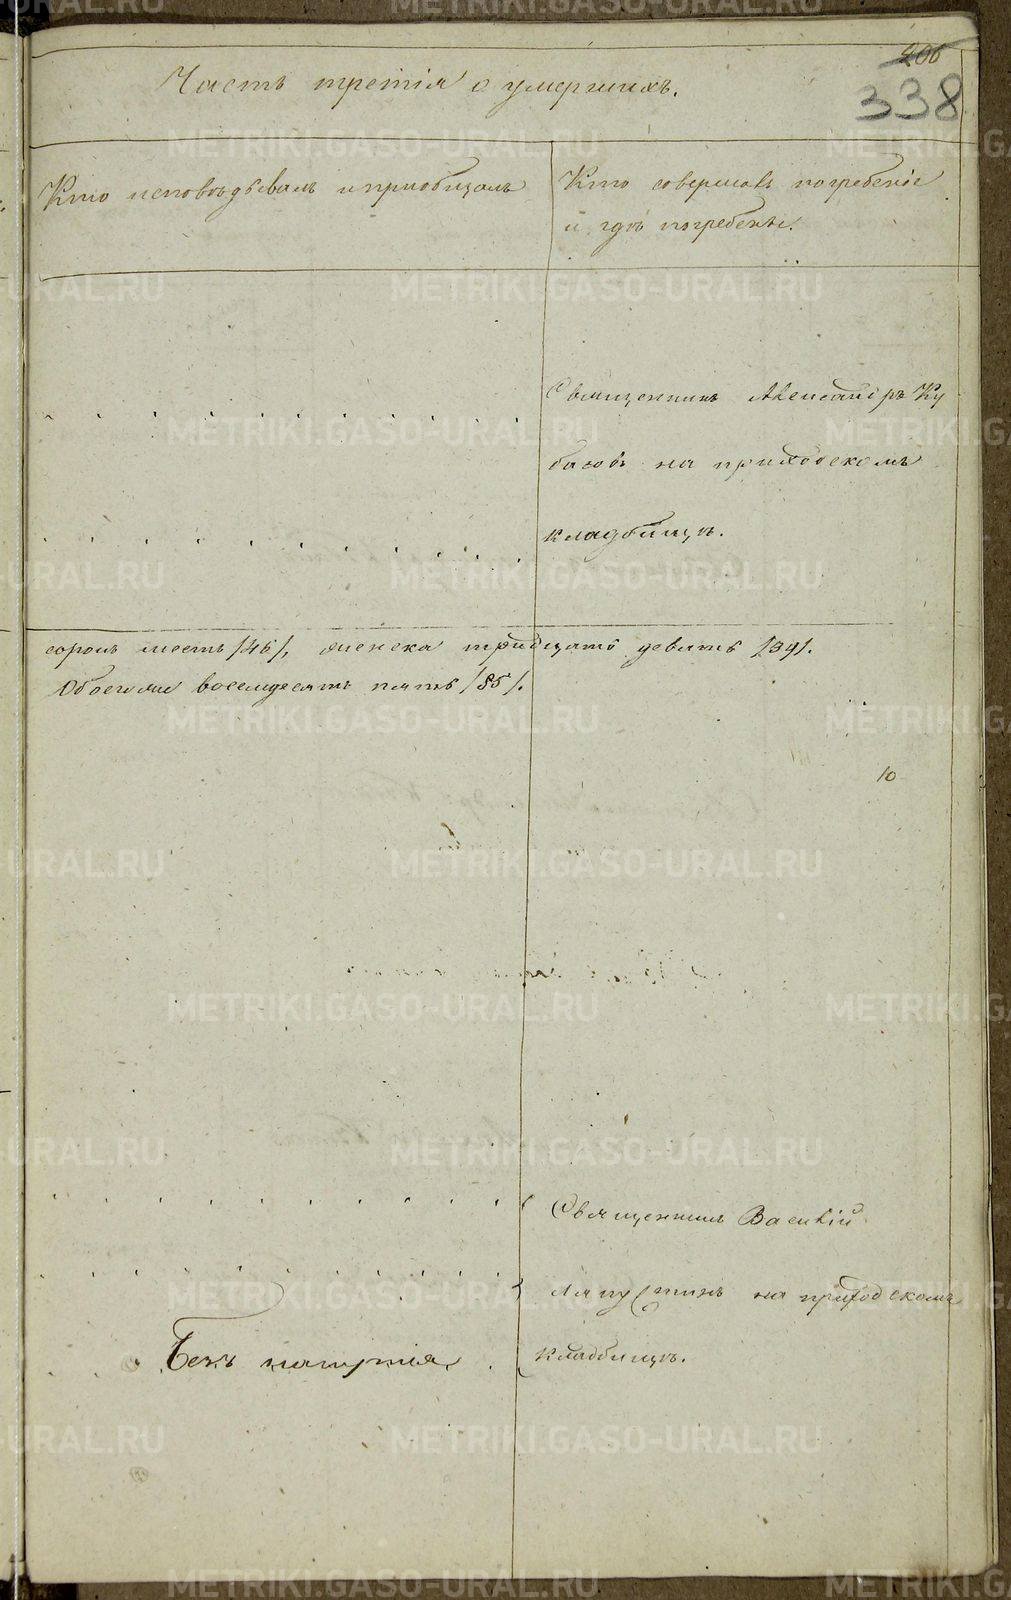 206
338
Часть третія о умершихъ.
Кто исповѣдывалъ и приобщалъ
Кто совершалъ погребеніе
и гдѣ погребены.
Священникъ Александръ Ку
басовъ на приходскомъ
кладбищѣ.
сорокъ шесть /46/, женска тридцать девять /39/.
Обоего восемдесятъ пять /85/.
10
Священникъ Василій
на приходскомъ
кладбищѣ.
METRIKI.GASO-URAL.RU